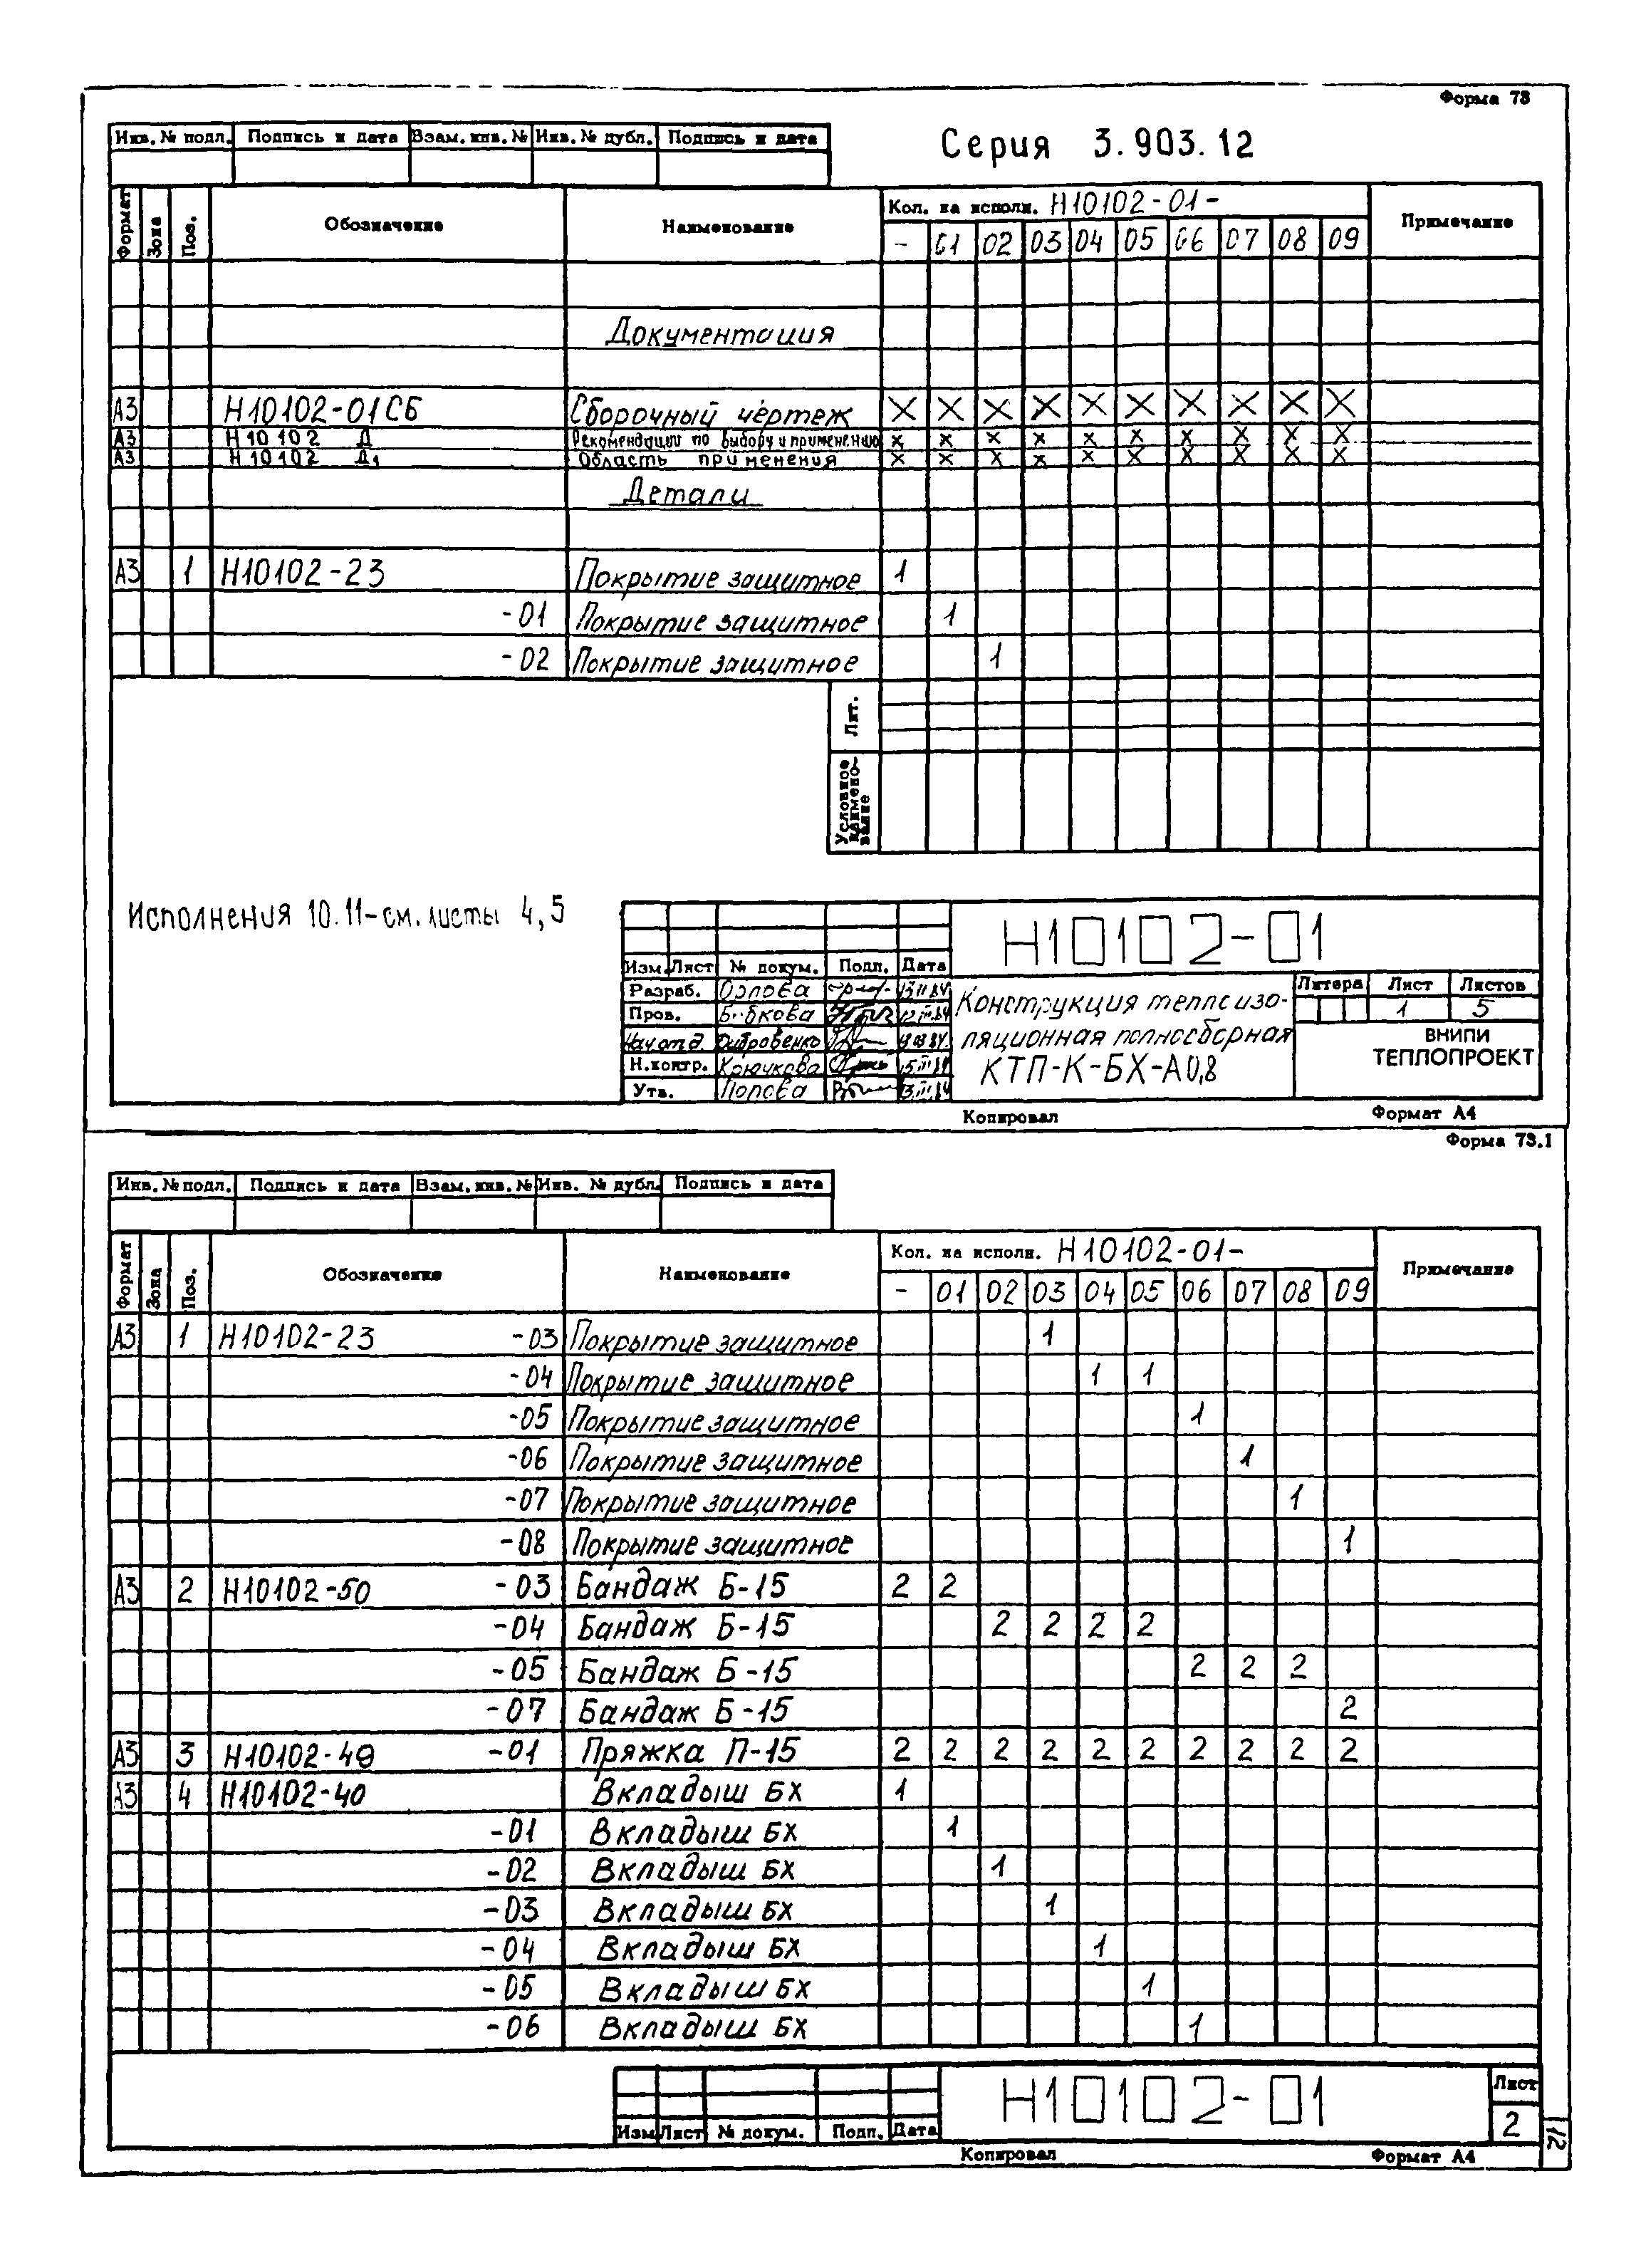 Форма 73
Инв. № подл. Подпись и дата Взам. инв. № Инв. № дубл. Подпись и дата
Серия 3.903.12
Формат Зона Поз. Обозначение Наименование Кол. на исполн. Н10102-01- Примечание
- 01 02 03 04 05 06 07 08 09
Документация
А3 Н10102-01СБ Сборочный чертеж X X X X X X X X X X
А3 Н10102 Д Рекомендации по выбору и применению х х х х х х х х х х
А3 Н10102 Д1 Область применения х х х х х х х х х х
Детали
А3 1 Н10102-23 Покрытие защитное 1
-01 Покрытие защитное 1
-02 Покрытие защитное 1
Лит.
Условное наименование
Исполнения 10.11-см. листы 4,5
Н10102-01
Изм. Лист № докум. Подп. Дата
Разраб. Орлова
Пров. Бобкова
Нач.отд.
Н.контр. Крючкова
Утв. Попова
Конструкция теплоизо-
ляционная полносборная
КТП-К-БХ-А0,8
Литера Лист Листов
1 5
ВНИПИ
ТЕПЛОПРОЕКТ
Копировал Формат А4
Форма 73.1
Инв. № подл. Подпись и дата Взам. инв. № Инв. № дубл. Подпись и дата
Формат Зона Поз. Обозначение Наименование Кол. на исполн. Н10102-01- Примечание
- 01 02 03 04 05 06 07 08 09
А3 1 Н10102-23 -03 Покрытие защитное 1
-04 Покрытие защитное 1 1
-05 Покрытие защитное 1
-06 Покрытие защитное 1
-07 Покрытие защитное 1
-08 Покрытие защитное 1
А3 2 Н10102-50 -03 Бандаж Б-15 2 2
-04 Бандаж Б-15 2 2 2 2
-05 Бандаж Б-15 2 2 2
-07 Бандаж Б-15 2
А3 3 Н10102-49 -01 Пряжка П-15 2 2 2 2 2 2 2 2 2 2
А3 4 Н10102-40 Вкладыш БХ 1
-01 Вкладыш БХ 1
-02 Вкладыш БХ 1
-03 Вкладыш БХ 1
-04 Вкладыш БХ 1
-05 Вкладыш БХ 1
-06 Вкладыш БХ 1
Н10102-01
Лист
2
Изм. Лист № докум. Подп. Дата
Копировал Формат А4
12